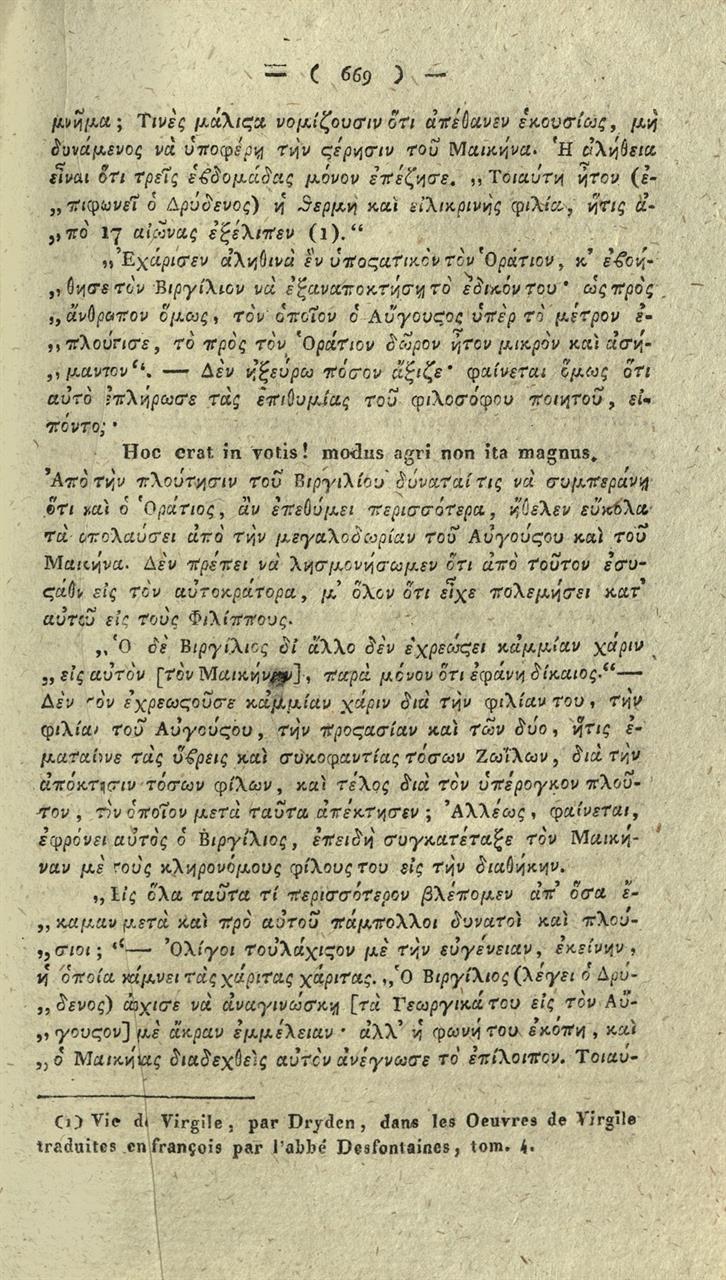 = ( 669 ) —
μνῆμα; Τινὲς μάλιςα νομίζουσιν ὅτι ἀπέθανεν ἑκουσίως, μὴ
δυνάμενος νὰ ὑποφέρῃ τὴν ςέρησιν τοῦ Μαικήνα. Ἡ ἀλήθεια
εἶναι ὅτι τρεῖς ἑβδομάδας μόνον ἐπέζησε. ,,Τοιαύτη ἦτον (ἐ-
,,πιφωνεῖ ὁ Δρύδενος) ἡ θερμὴ καὶ εἰλικρινὴς φιλία, ἥτις ἀ-
,,πὸ 17 αἰῶνας ἐξέλιπεν (1).“
,,Ἐχάρισεν ἀληθινὰ ἓν ὑποςατικὸν τὸν Ὁράτιον, κ' ἐβοή-
,,θησε τὸν Βιργίλιον νὰ ἐξαναποκτήσῃ τὸ ἐδικόν του· ὡς πρὸς
,,ἄνθρωπον ὅμως, τὸν ὁποῖον ὁ Αὔγουςος ὑπὲρ τὸ μέτρον ἐ-
,,πλούτισε, τὸ πρὸς τὸν Ὁράτιον δῶρον ἦτον μικρὸν καὶ ἀσή-
,,μαντον“. — Δὲν ἠξεύρω πόσον ἄξιζε· φαίνεται ὅμως ὅτι
αὐτὸ ἐπλήρωσε τὰς ἐπιθυμίας τοῦ φιλοσόφου ποιητοῦ, εἰ-
πόντος·
Hoc erat in votis! modus agri non ita magnus.
Ἀπὸ τὴν πλούτησιν τοῦ Βιργιλίου δύναταί τις νὰ συμπεράνῃ
ὅτι καὶ ὁ Ὁράτιος, ἂν ἐπεθύμει περισσότερα, ἤθελεν εὔκολα
τὰ ἀπολαύσει ἀπὸ τὴν μεγαλοδωρίαν τοῦ Αὐγούςου καὶ τοῦ
Μαικήνα. Δὲν πρέπει νὰ λησμονήσωμεν ὅτι ἀπὸ τοῦτον ἐσυ-
ςάθη εἰς τὸν αὐτοκράτορα, μ' ὅλον ὅτι εἶχε πολεμήσει κατ'
αὐτοῦ εἰς τοὺς Φιλίππους.
,,Ὁ δὲ Βιργίλιος δἰ ἄλλο δὲν ἐχρεώςει κἀμμίαν χάριν
,,εἰς αὐτὸν [τὸν Μαικήναν], παρὰ μόνον ὅτι ἐφάνη δίκαιος.“—
Δὲν τὸν ἐχρεωςοῦσε κἀμμίαν χάριν διὰ τὴν φιλίαν του, τὴν
φιλίαν τοῦ Αὐγούςου, τὴν προςασίαν καὶ τῶν δύο, ἥτις ἐ-
ματαίωνε τὰς ὕβρεις καὶ συκοφαντίας τόσων Ζωΐλων, διὰ τὴν
ἀπόκτησιν τόσων φίλων, καὶ τέλος διὰ τὸν ὑπέρογκον πλοῦ-
τον, τὸν ὁποῖον μετὰ ταῦτα ἀπέκτησεν; Ἀλλέως, φαίνεται,
ἐφρόνει αὐτὸς ὁ Βιργίλιος, ἐπειδὴ συγκατέταξε τὸν Μαική-
ναν μὲ τοὺς κληρονόμους φίλους του εἰς τὴν διαθήκην.
,,Εἰς ὅλα ταῦτα τί περισσότερον βλέπομεν ἀπ' ὅσα ἔ-
,,καμαν μετὰ καὶ πρὸ αὐτοῦ πάμπολλοι δυνατοὶ καὶ πλού-
,,σιοι; “— Ὀλίγοι τοὐλάχιςον μὲ τὴν εὐγένειαν, ἐκείνην,
ἡ ὁποία κάμνει τὰς χάριτας χάριτας. ,,Ὁ Βιργίλιος (λέγει ὁ Δρύ-
,,δενος) ἄρχισε νὰ ἀναγινώσκῃ [τὰ Γεωργικά του εἰς τὸν Αὔ-
,,γουςον] μὲ ἄκραν ἐμμέλειαν· ἀλλ' ἡ φωνή του ἐκόπη, καὶ
,,ὁ Μαικήνας διαδεχθεὶς αὐτὸν ἀνέγνωσε τὸ ἐπίλοιπον. Τοιαύ-
(1) Vie de Virgile, par Dryden, dans les Oeuvres de Virgile
traduites en françois par l'abbé Desfontaines, tom. 4.